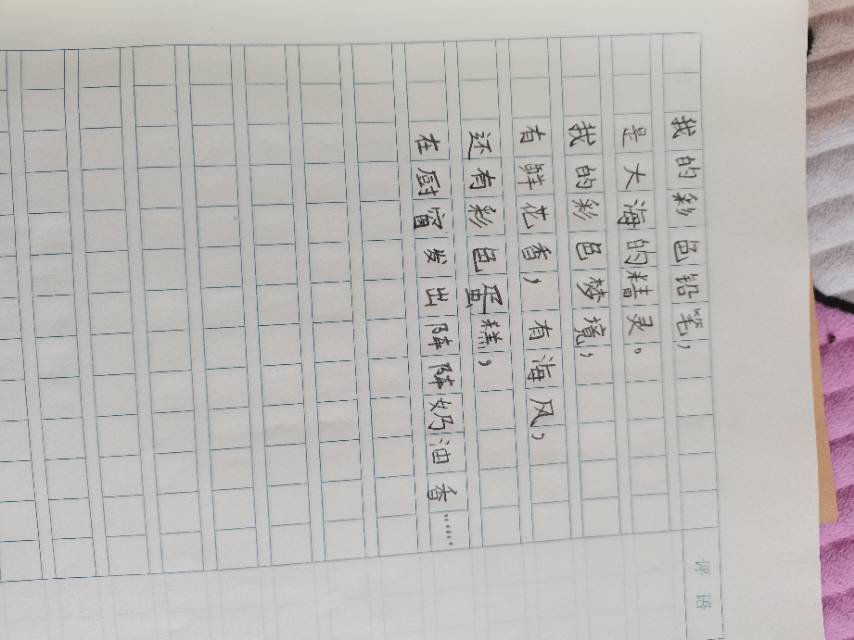 我的彩色铅笔，
是大海的精灵。
我的彩色梦境，
有鲜花香，有海风，
还有彩色蛋糕，
在厨窗发出阵阵奶油香……
评语